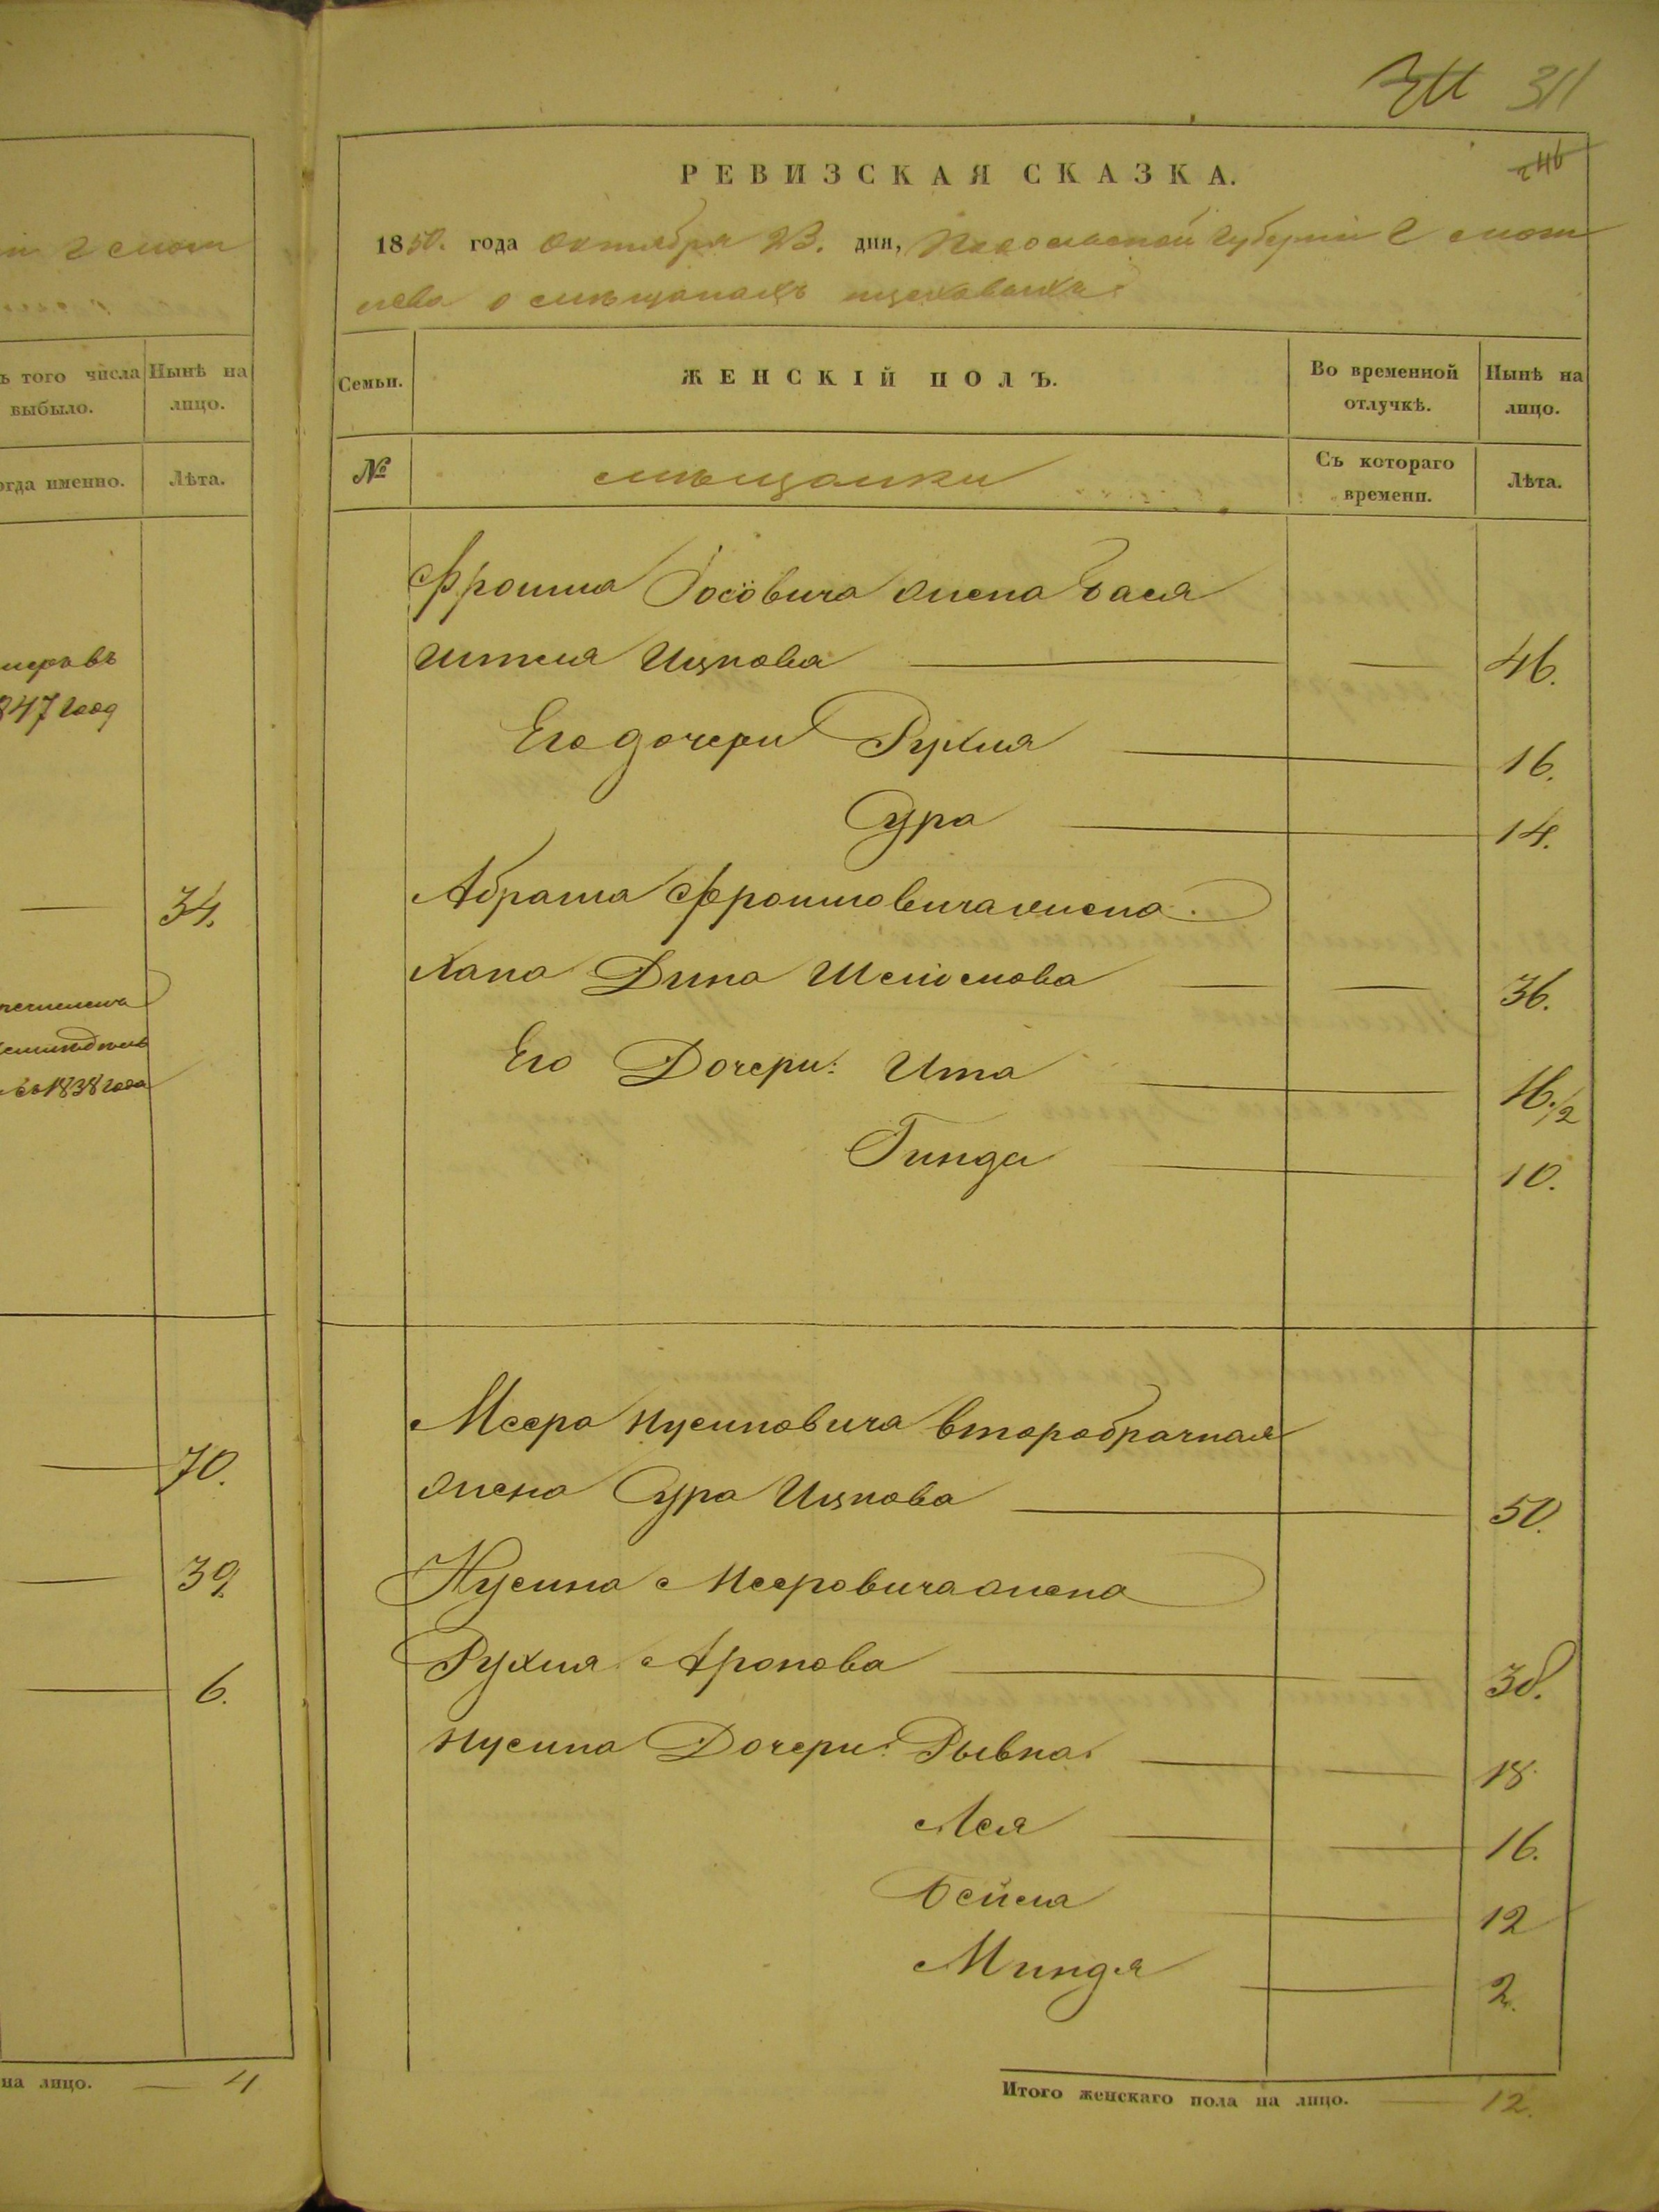 311
РЕВИЗСКАЯ СКАЗКА.
1850. года Октября 23. дня, Подольской Губернии г
о мѣщанахъ
Семьи.
ЖЕНСКІЙ ПОЛЪ.
Во временной отлучкѣ.
Нынѣ на лицо.
№
мѣщанки
Съ котораго времени.
Лѣта.
Фроима Іосіовича жена Бася
Ителя Ицкова 46.
Его дочери Рухля 16.
Сура 14.
Абрама Фроимовича жена
Хана Дина 36.
Его Дочери: Ита 16 1/2
Гинда 10.
Меера Нусиновича второбрачная
жена Сура Ицкова 50.
Нусина Мееровича жена
Рухля Аронова 38.
Нусина Дочери: Рывка 18
Лея 16.
Бейла 12
Миндя 2.
Итого женскаго пола на лицо. 12.
ъ того числа выбыло.
Нынѣ на лицо.
огда именно.
Лѣта.
847 год
34.
съ 1838 года
70.
39.
6.
на лицо. 4